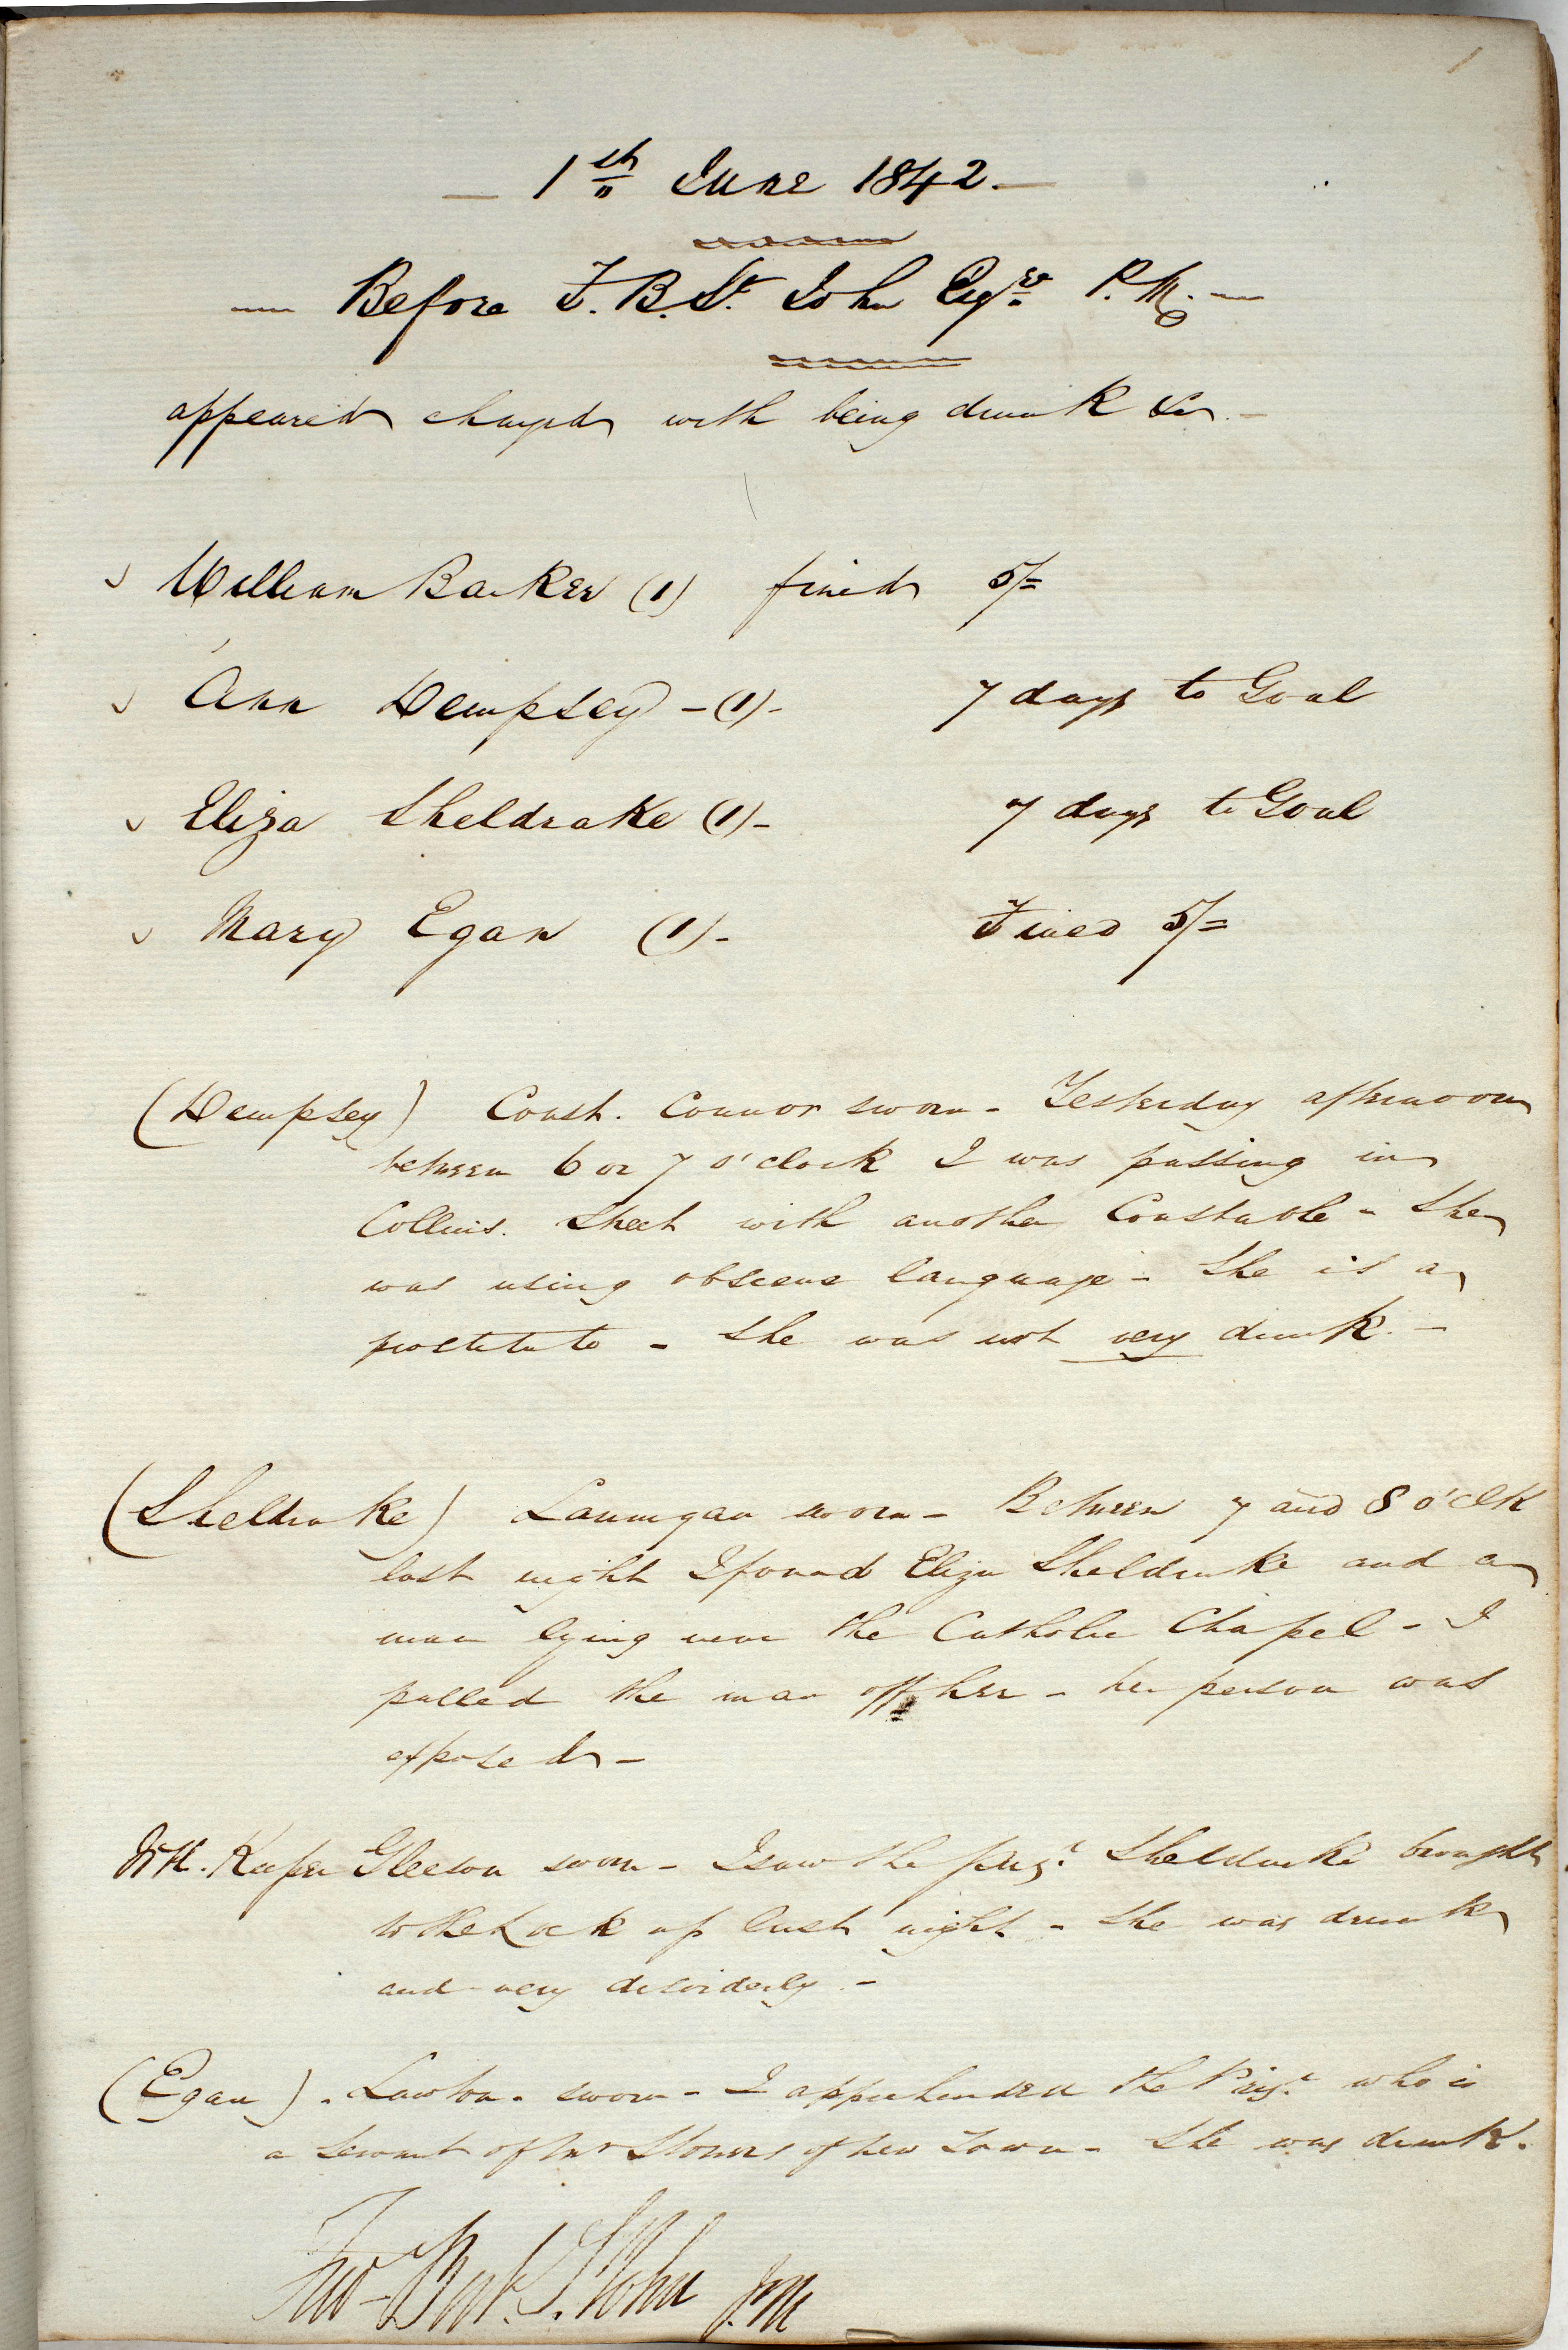 1
1st June 1842.
Before F. B. St. John Esqre P.M.
appeared charged with being drunk &c.
William Barker (1) fined 5/=
Ann Dempsey - (1) - 7 days to Goal
Eliza Sheldrake (1) - 7 days to Goal
Mary Egan (1) - Fined 5/=
(Dempsey) Const. Connor sworn - Yesterday afternoon
between 6 or 7 o'clock I was passing in
Collins. Street with another Constable - She
was using obscene language - She is a
prostitute - She was not very drunk. -
(Sheldrake) Lannigan sworn - Between 7 and 8 o'clk
last night I found Eliza Sheldrake and a
man lying near the Catholic Chapel - I
pulled the man off her - her person was
exposed -
W.H. Keeper Gleeson sworn - I saw the prisr. Sheldrake brought
to the Lock up last night - She was drunk
and very disorderly. -
(Egan) . Lawton. sworn - I apprehended the Prisr. who is
a servant of Mr of New Town - She was drunk.
Fred Berk. St. John P.M.